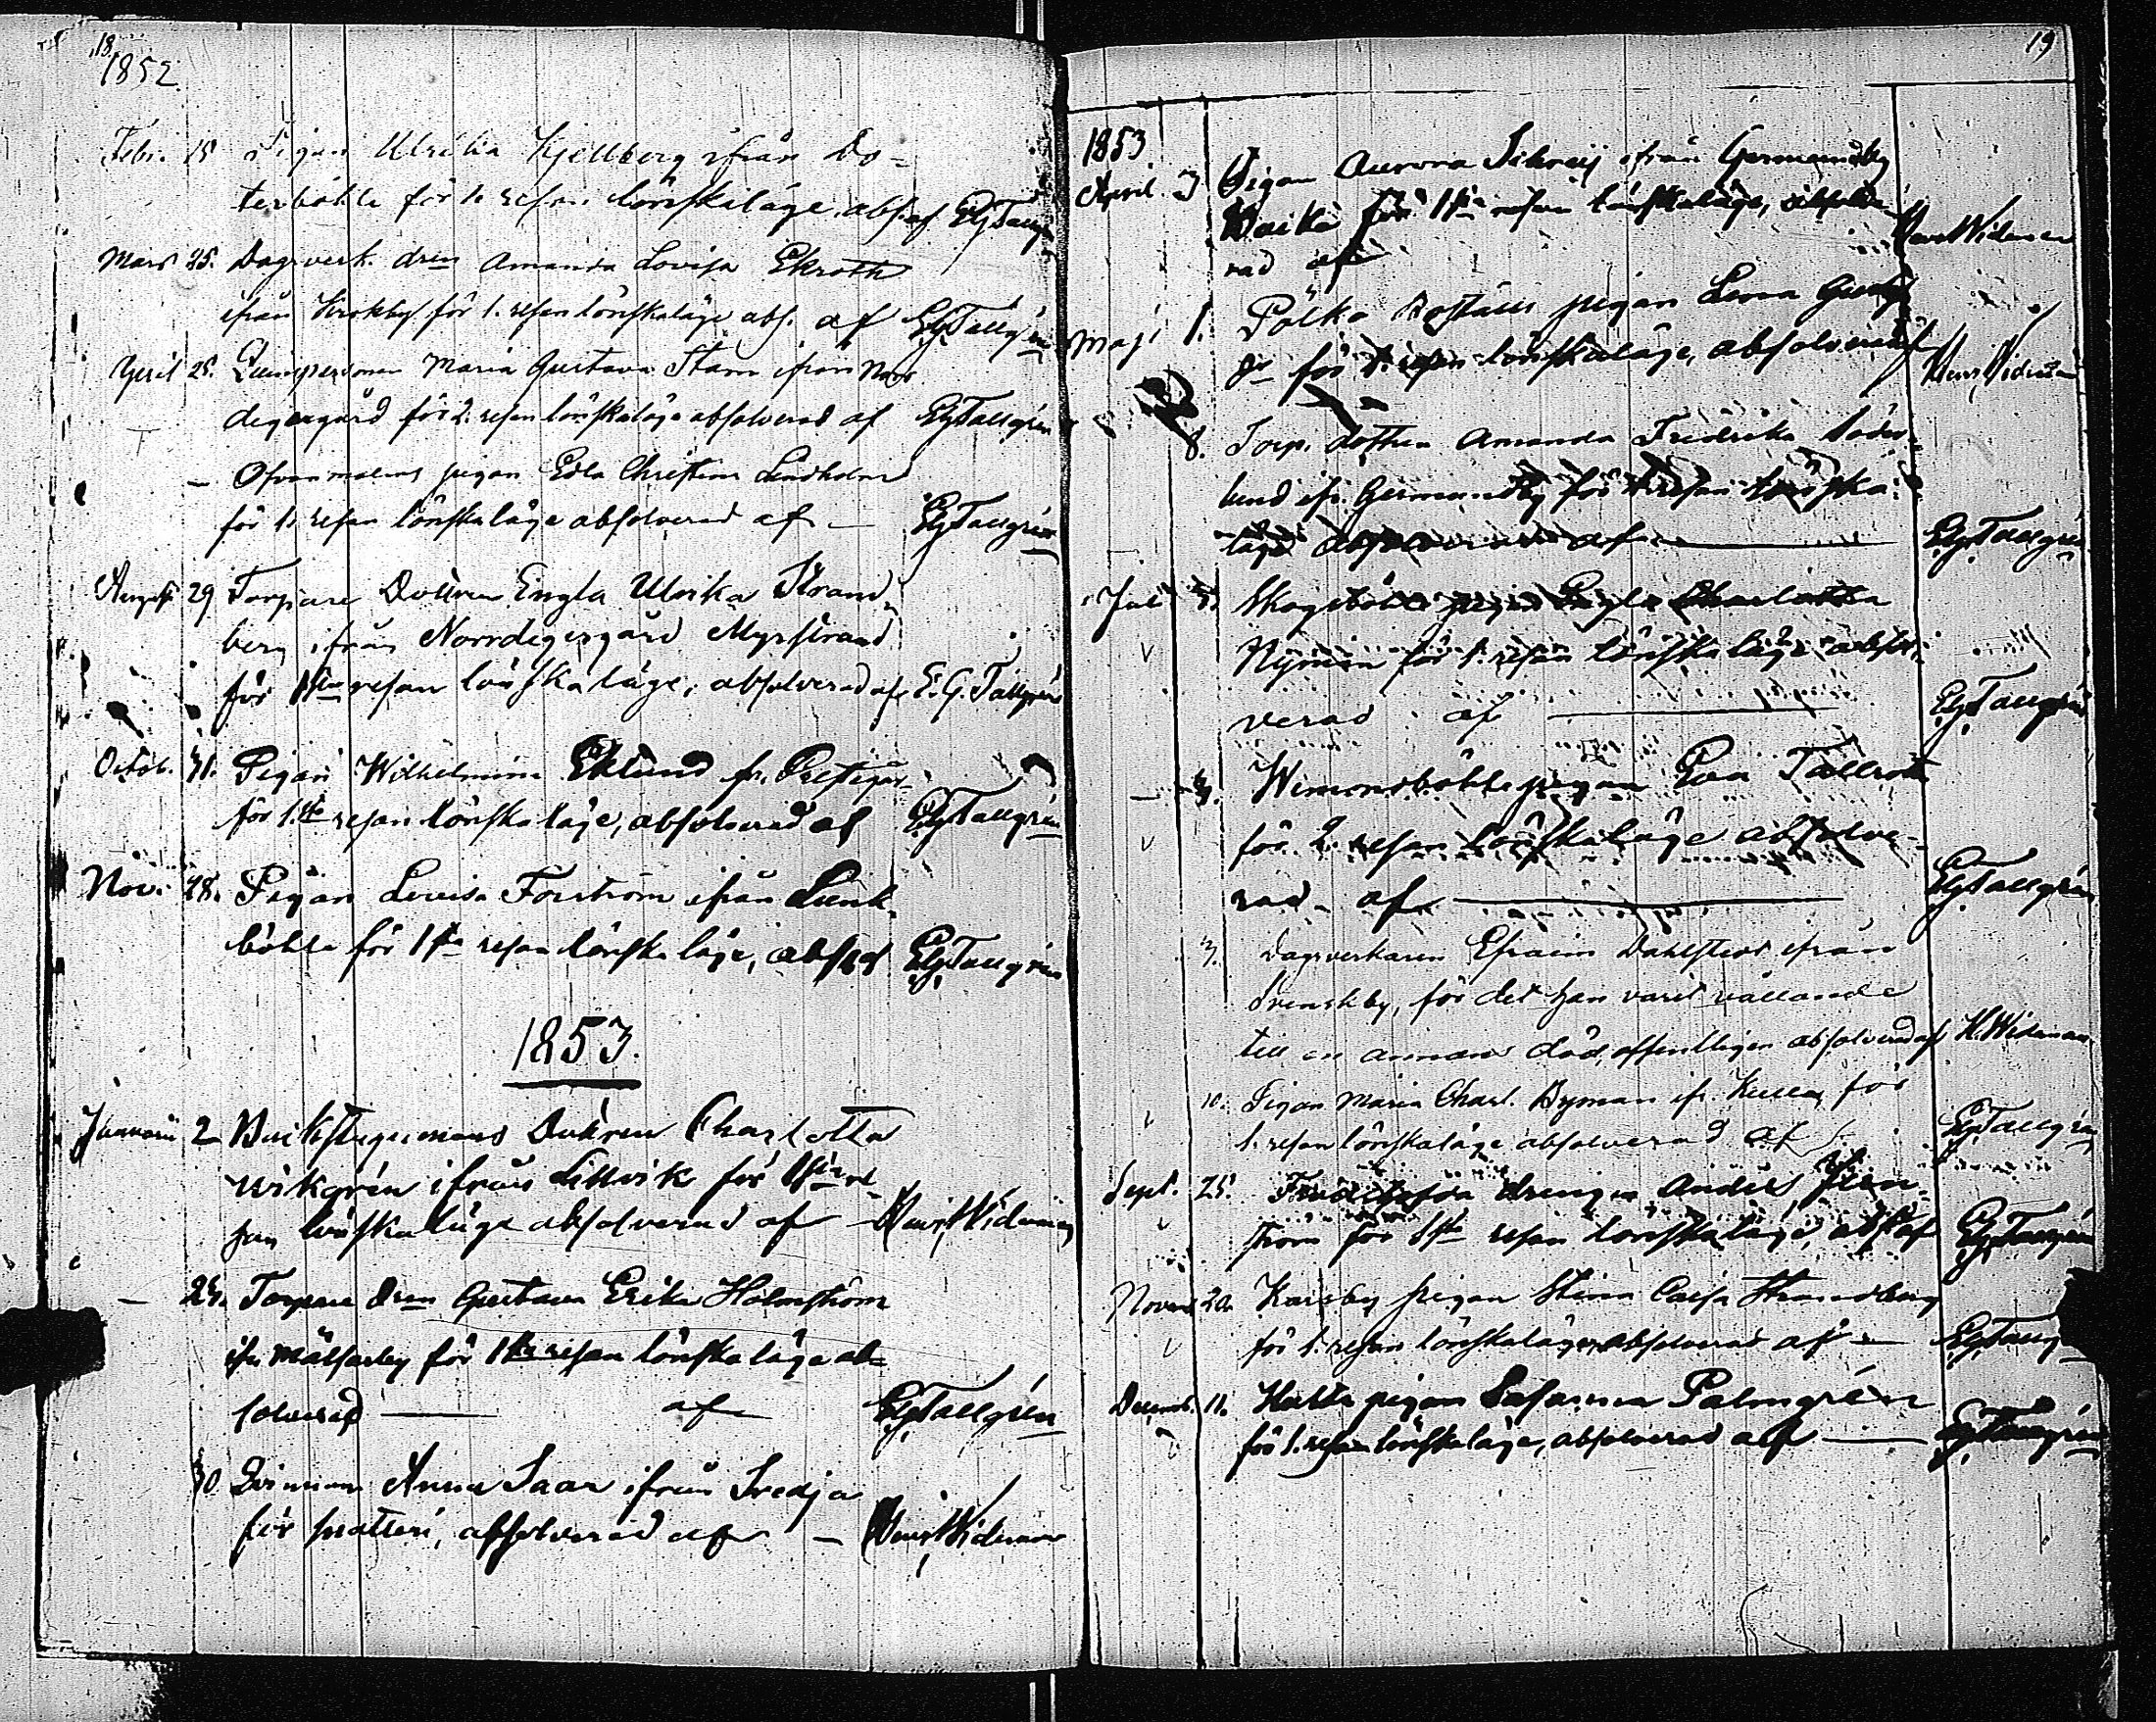 18.
1852.
Febr. 15 Pigan Ulrika Kjellberg ifrån Bo-
terböhle för 1. resan lönskaläge, abs. af EGTallgrén
Mars 25. Dagsverk. drn Amanda Lovisa Ekroth
ifrån Krokby för 1. resan lönskaläge abs. af EGTallgrén
April 25. Qvinspersonen Maria Gustava Stam ifrån Norr
degergård för 2. resan lönskaläge absolverad af EGTallgrén
— Ofvanmalms pigan Edla Christina Lindholm
för 1. resan lönskaläge absolverad af — EGTallgrén
August 29 Torpare Dottren Engla Ulrika Strand
berg ifrån Norrdegergård Myrstrand
för 1sta resan lönskaläge, absolverad af E.G. Tallgrén
Octob. 31. Pigan Wilhelmina Eklund fr. Prestgår
för 1.sta resan lönskaläge, absolverad af EGTallgrén
Nov. 28. Pigan Lovisa Forström ifrån Lunk-
böhle för 1sta resan lönskaläge, abs. af EGTallgrén
1853.
Januarii 2 Dottren Charlotta
Wikgrén ifrån Lillvik för 1sta re-
san lönskaläge absolverad af — Wideman
— 24. Torpare drn Gustava Erika Holmström
ifr. Mälsarby för 1sta resan lönskaläge ab-
solverad — af EGTallgrén
30 Qvinnan Anna Saar ifrån Tredja
för snatteri, absolverad af — Widman
19
1853
April 3 Pigan Aurora ifrån Germundby
för 1sta resan lönskaläge, absolve
rad af Widman
Maj 1. Pölkö Roställs pigan Leena
för 1. resan lönskaläge, absolverad af Widman
8. Torp. dottren Amanda Fredrika Söder-
lund ifr. Germundby för 1. resan lönska-
läge absolverad af — EGTallgrén
Juli 3. Skogsböhle pigan Engla Charlotta
Nyman för 1. resan lönskaläge absol-
verad af — EGTallgrén
— 3. Wimonsböhle pigan Eva Tallroth
för 2. resan lönskaläge absolve-
rad af — EGTallgrén
3. Dagsverkaren Efraim Dahlstedt ifrån
Svenskby, för det han varit vållande
till en annans död, offentligen absolverad af H. Wideman
10. Pigan Maria Charl. Byman ifr. Kulla för
1. resan lönskaläge absolverad af EGTallgrén
Sept. 25. drengen Anders
ström för 1sta resan lönskaläge, abs. af EGTallgrén
Novemb. 20. Karsby pigan Stina Caisa Strandberg
för 1. resan lönskaläge absolverad af — EGTallgrén
Decemb. 11. pigan Susanna Palmgrén
för 1. resan lönskaläge, absolverad af — EGTallgrén